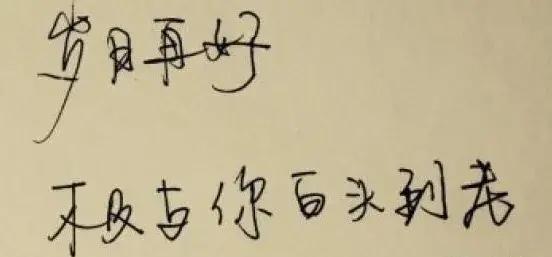 岁月再好
不及与你白头到老